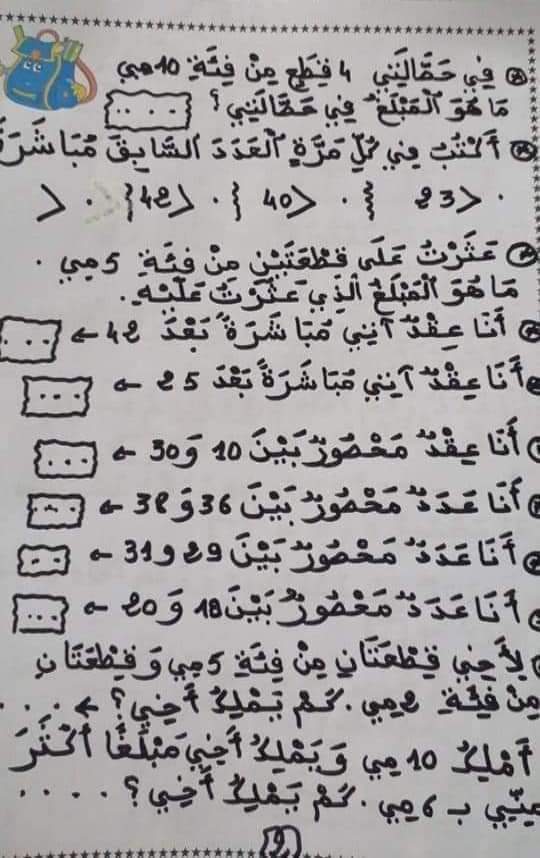 في حَصَّالَتِي 4 قِطَعٍ مِنْ فِئَةِ 10مي
مَا هُوَ الْمَبْلَغُ في حَصَّالَتِي؟ ....
أَكْتُبُ في كُلِّ مَرَّةٍ الْعَدَدَ السَّابِقَ مُبَاشَرَةً
. < 23 } . < 40 } . < 42 } . <
عَثَرْتُ عَلَى قِطْعَتَيْنِ مِنْ فِئَةِ 5مي .
مَا هُوَ الْمَبْلَغُ الَّذِي عَثَرْتُ عَلَيْهِ.
أَنَا عِقْدٌ آتِي مُبَاشَرَةً بَعْدَ 42 ← ...
أَنَا عِقْدٌ آتِي مُبَاشَرَةً بَعْدَ 25 ← ...
أَنَا عِقْدٌ مَحْصُورٌ بَيْنَ 10 وَ 30 ← ...
أَنَا عَدَدٌ مَحْصُورٌ بَيْنَ 36 وَ 38 ← ...
أَنَا عَدَدٌ مَحْصُورٌ بَيْنَ 29 و 31 ← ...
أَنَا عَدَدٌ مَحْصُورٌ بَيْنَ 18 وَ 20 ← ...
لِأَخِي قِطْعَتَانِ مِنْ فِئَةِ 5مي وَ قِطْعَتَانِ
مِنْ فِئَةِ 2مي. كَمْ يَمْلِكُ أَخِي؟ ← ....
أَمْلِكُ 10 مي وَيَمْلِكُ أَخِي مَبْلَغًا أَكْثَرَ
مِنِّي بِ 6 مي. كَمْ يَمْلِكُ أَخِي؟ .....
2